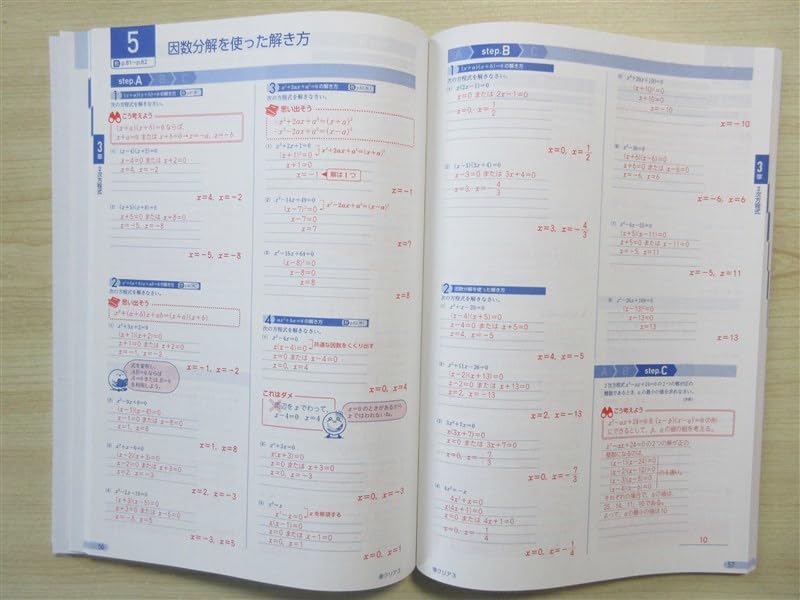 5 因数分解を使った解き方
p.81〜p.82
step.A B C
3章
2次方程式
1 (x+a)(x+b)=0の解き方
次の方程式を解きなさい。
こう考えよう
(x+a)(x+b)=0ならば，
x+a=0 または x+b=0→x=-a, x=-b
(1) (x-4)(x+2)=0
x-4=0 または x+2=0
x=4, x=-2
x=4, x=-2
(2) (x+5)(x+8)=0
x+5=0 または x+8=0
x=-5, x=-8
x=-5, x=-8
次の方程式を解きなさい。
思い出そう
x²+(a+b)x+ab=(x+a)(x+b)
(1) x²+3x+2=0
(x+1)(x+2)=0
x+1=0 または x+2=0
x=-1, x=-2
x=-1, x=-2
(x-1)(x-8)=0
x-1=0 または x-8=0
x=1, x=8
x=1, x=8
(3) x²+x-6=0
(x-2)(x+3)=0
x-2=0 または x+3=0
x=2, x=-3
x=2, x=-3
(4) x²-2x-15=0
(x+3)(x-5)=0
x+3=0 または x-5=0
x=-3, x=5
x=-3, x=5
56
3 x²+2ax+a²=0の解き方
次の方程式を解きなさい。
思い出そう
x²+2ax+a²=(x+a)²
x²-2ax+a²=(x-a)²
(1) x²+2x+1=0
(x+1)²=0 x²+2ax+a²=(x+a)²
x+1=0
x=-1 解は1つ
x=-1
(2) x²-14x+49=0
(x-7)²=0 x²-2ax+a²=(x-a)²
x-7=0
x=7
x=7
(3) x²-16x+64=0
(x-8)²=0
x-8=0
x=8
x=8
4 ax²+bx=0の解き方
次の方程式を解きなさい。
(1) x²-4x=0
x(x-4)=0 共通な因数をくくり出す
x=0 または x-4=0
x=0, x=4
x=0, x=4
これはダメ
両辺をxでわって，
x-4=0 x=4
x=0のときがあるから
xではわれないね。
(2) x²+3x=0
x(x+3)=0
x=0 または x+3=0
x=0, x=-3
x=0, x=-3
(3) x²=x
x²-x=0 xを移項する
x(x-1)=0
x=0 または x-1=0
x=0, x=1
x=0, x=1
●クリア3
A step.B C
1 (x+a)(x+b)=0の解き方
次の方程式を解きなさい。
(1) x(2x-1)=0
x=0 または 2x-1=0
x=0, x=1/2
x=0, x=1/2
(2) (x-3)(3x+4)=0
x-3=0 または 3x+4=0
x=3, x=-4/3
x=3, x=-4/3
2 因数分解を使った解き方
次の方程式を解きなさい。
(1) x²+x-20=0
(x-4)(x+5)=0
x-4=0 または x+5=0
x=4, x=-5
x=4, x=-5
(2) x²+11x-26=0
(x-2)(x+13)=0
x-2=0 または x+13=0
x=2, x=-13
x=2, x=-13
(3) 3x²+7x=0
x(3x+7)=0
x=0 または 3x+7=0
x=0, x=-7/3
x=0, x=-7/3
(4) 4x²=-x
4x²+x=0
x(4x+1)=0
x=0 または 4x+1=0
x=0, x=-1/4
x=0, x=-1/4
●クリア3
(5) x²+20x+100=0
(x+10)²=0
x+10=0
x=-10
x=-10
(6) x²-36=0
(x+6)(x-6)=0
x+6=0 または x-6=0
x=-6, x=6
x=-6, x=6
(7) x²-6x-55=0
(x+5)(x-11)=0
x+5=0 または x-11=0
x=-5, x=11
x=-5, x=11
(8) x²-26x+169=0
(x-13)²=0
x-13=0
x=13
x=13
3章
2次方程式
A B step.C
2次方程式x²-ax+24=0の2つの解が正の
整数であるとき，aの最小の値を求めなさい。
こう考えよう
x²-ax+24=0を(x-p)(x-q)=0の形
にできるとして，p，qの値の組を考える。
x²-ax+24=0の2つの解が正の
整数になるのは，
(x-1)(x-24)=0
(x-2)(x-12)=0
(x-3)(x-8)=0 の4通り。
(x-4)(x-6)=0
それぞれの場合で，aの値は
25，14，11，10である。
よって，aの最小の値は10
10
57